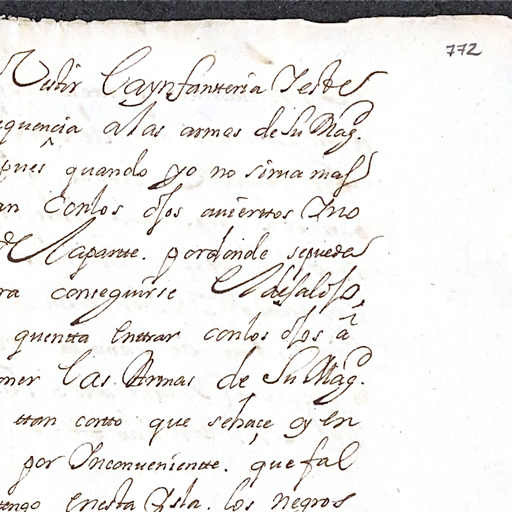 772
Vestir la ynfanteria Y este
equencia a las armas de Su Mag.d
pues quando yo no sirua mas
an Con los ojos auiertos Y no
la parte. por donde se pueda
ra conseguirse El desalojo,
quentta enttrar con los ojos â
oner las Armas de Su Mag.d
ttan cortto que se haçe oy en
por Inconueniente. que fal
tengo en esta Ysla. los negros